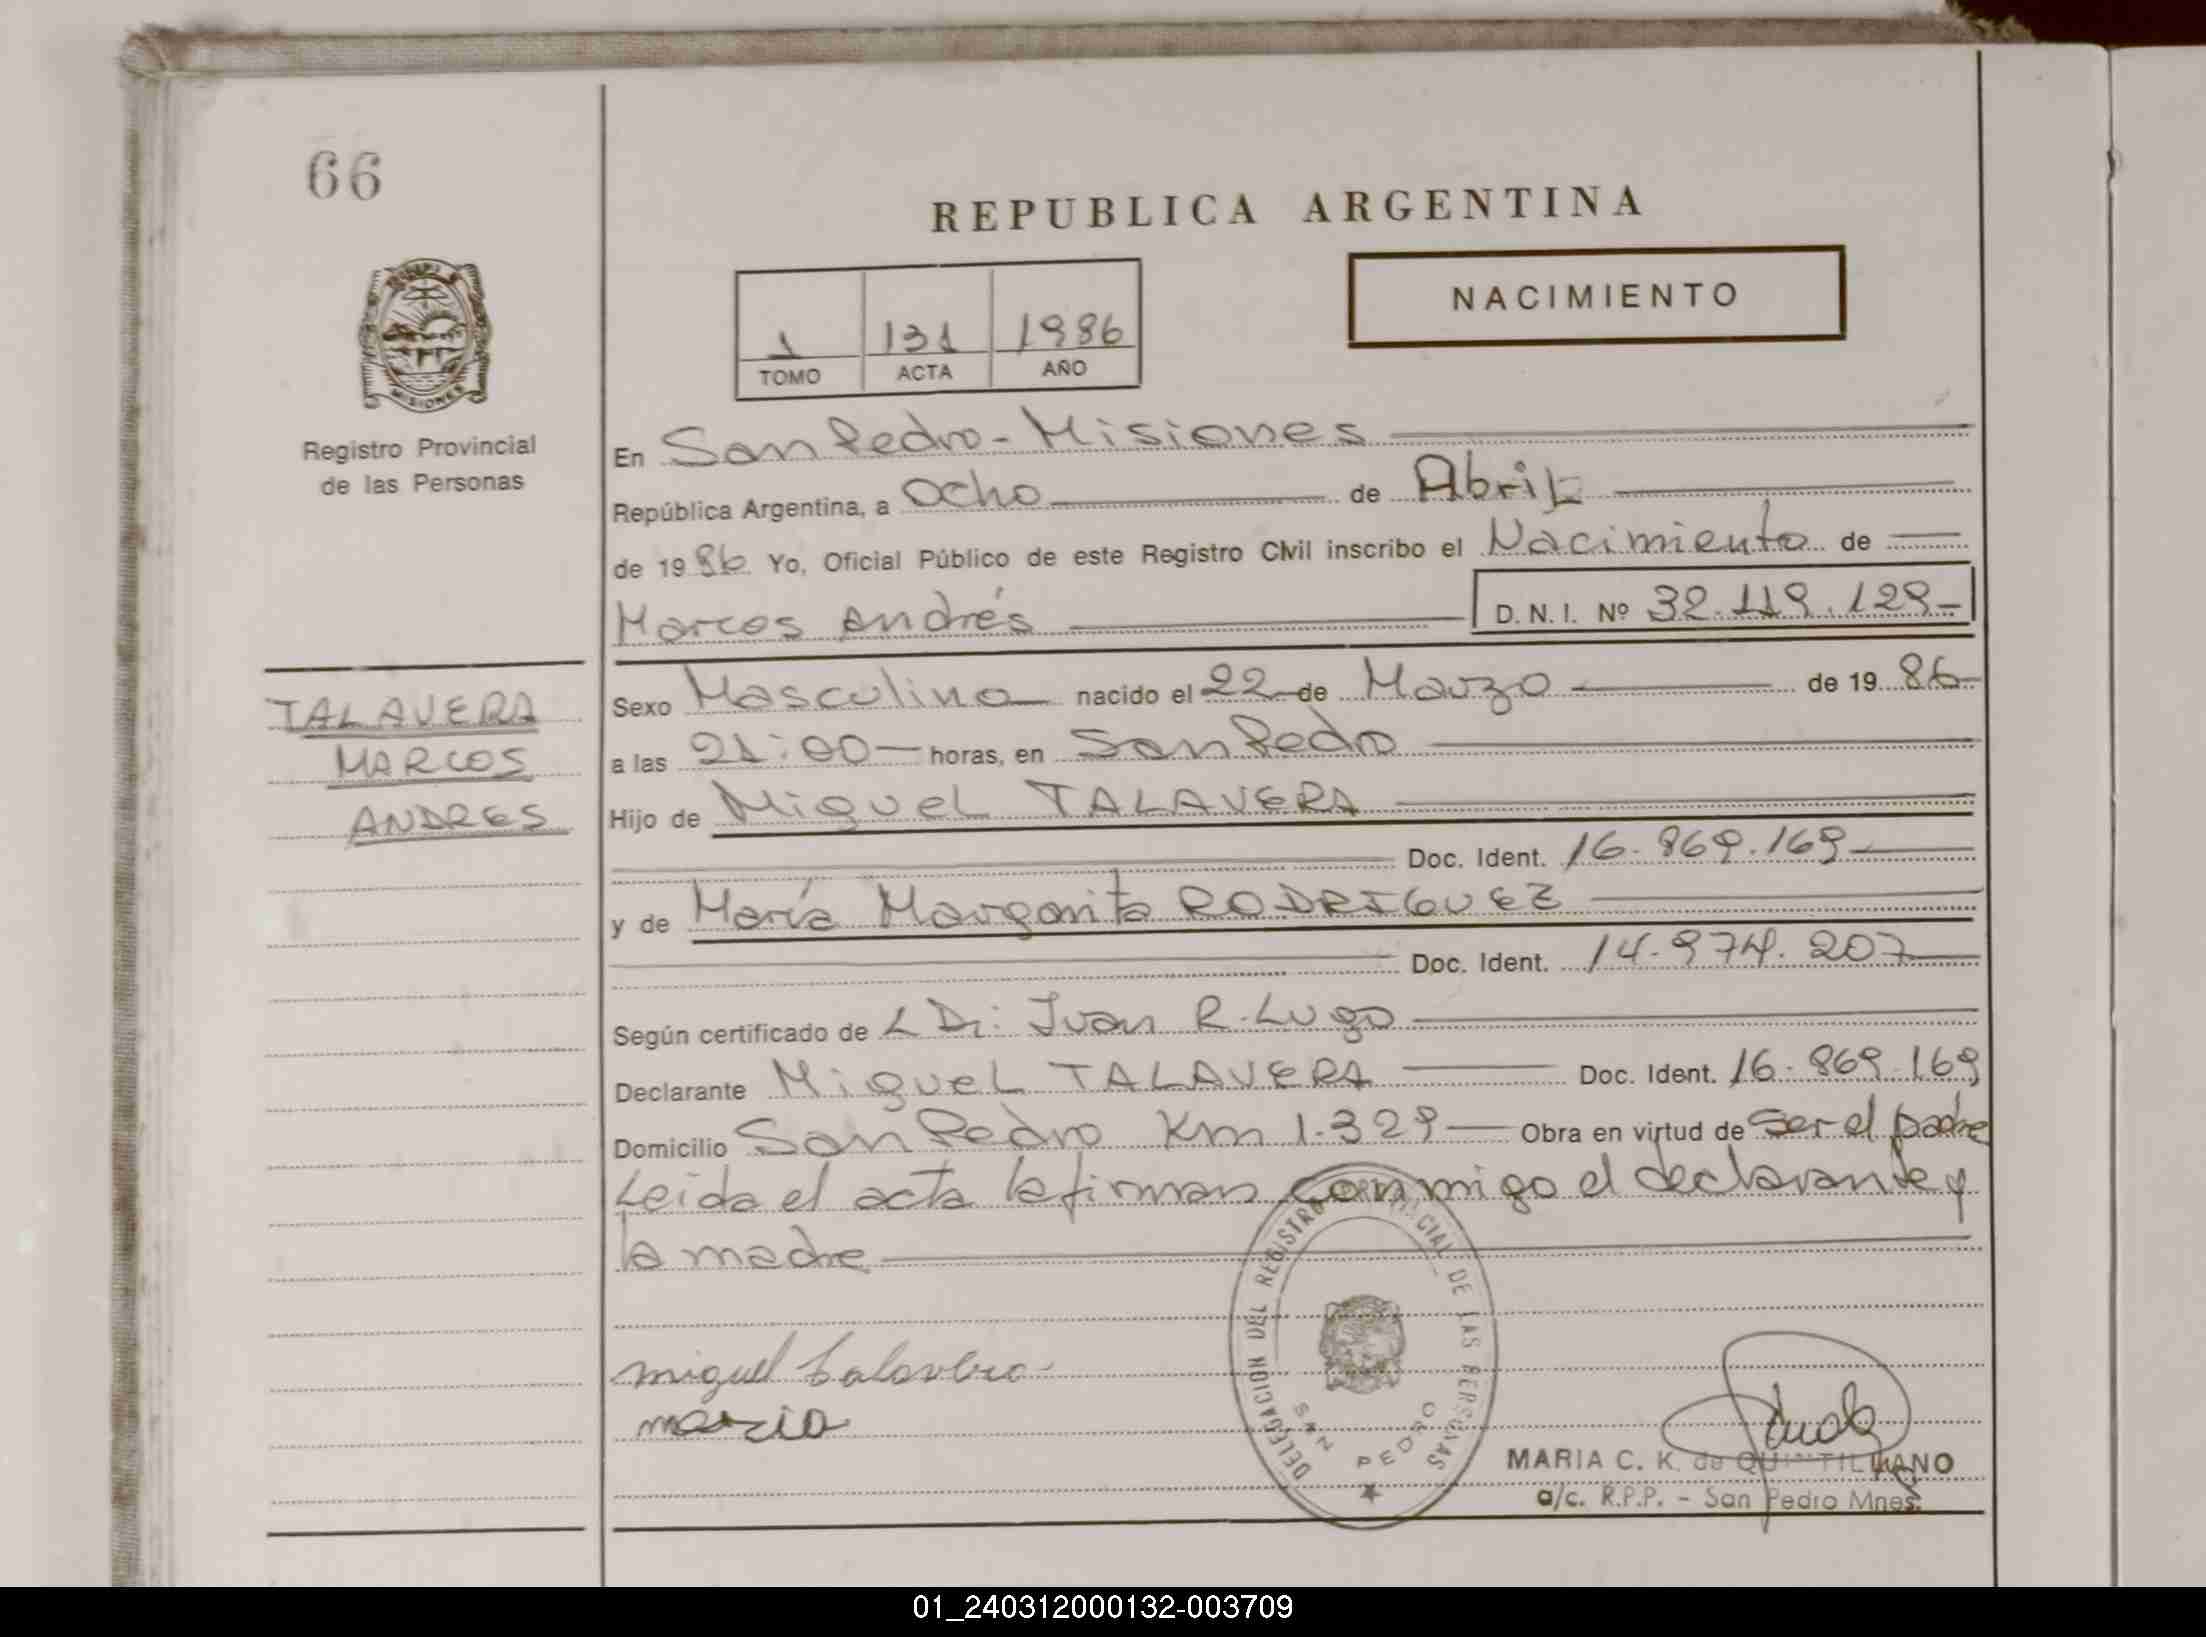 66
REPUBLICA ARGENTINA
NACIMIENTO
1 131 1986
TOMO ACTA AÑO
MISIONES
Registro Provincial
de las Personas
En San Pedro - Misiones
República Argentina, a Ocho de Abril
de 1986 Yo, Oficial Público de este Registro Civil inscribo el Nacimiento de
Marcos Andrés D. N. I. Nº 32.119.129-
TALAVERA
MARCOS
ANDRES
Sexo Masculino nacido el 22 de Marzo de 1986
a las 21:00 horas, en San Pedro
Hijo de Miguel TALAVERA
Doc. Ident. 16.869.169
y de María Margarita RODRIGUEZ
Doc. Ident. 14.974.207
Según certificado de L Dr: Juan R. Lugo
Declarante Miguel TALAVERA Doc. Ident. 16.869.169
Domicilio San Pedro Km 1.329 Obra en virtud de ser el padre
Leida el acta la firman conmigo el declarante y
la madre
DELEGACION DEL REGISTRO PROVINCIAL DE LAS PERSONAS
SAN PEDRO
miguel talavera
maria
MARIA C. K. de QUINTILIANO
a/c. R.P.P. - San Pedro Mnes.
01_240312000132-003709